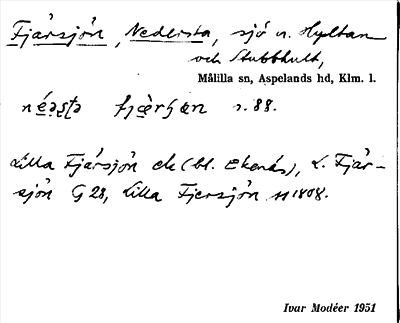 Fjärsjön, Nedersta, sjö n. Hyltan
och Stubbhult,
Målilla sn, Aspelands hd, Klm. l.
fjær s. 88.
Lilla Fjärsjön ek (bl. Ekenäs), L. Fjär-
sjön G 28, Lilla Fjersjön 1808.
Ivar Modéer 1951